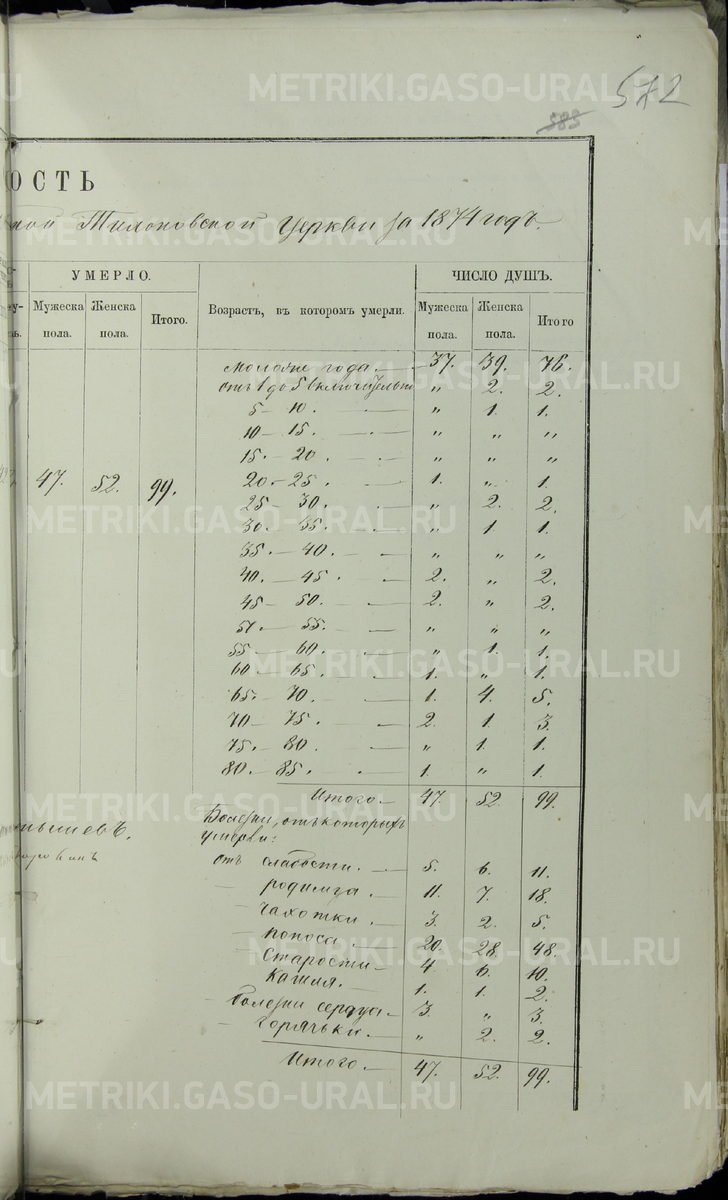 572
583
ОСТЬ
ной Тихоновской Церкви за 1874 годъ.
УМЕРЛО.
ЧИСЛО ДУШЪ.
Мужеска пола.
Женска пола.
Итого.
Возрастъ, въ которомъ умерли.
Мужеска пола.
Женска пола.
Итого
моложе года. — 37. 39. 76.
отъ 1 до 5 включительно „ 2. 2.
5 — 10. — „ 1. 1.
10 — 15. — „ „ „
15. — 20. — „ „ „
47. 52. 99.
20 — 25. — 1. „ 1.
25 30. — „ 2. 2.
30. — 35. — „ 1 1.
35. — 40. — „ „ „
40. — 45. — 2. „ 2.
45 — 50. — 2. „ 2.
51. — 55. — „ „ „
55 — 60. — „ 1. 1.
60 — 65. — 1. „ 1.
65. — 70. — 1. 4. 5.
70 — 75. — 2. 1. 3.
75. — 80. — „ 1. 1.
80. — 85. — 1. „ 1.
Итого — 47. 52. 99.
Болезни, отъ которыхъ
умерли:
отъ слабости. — 5. 6. 11.
— родимца — 11. 7. 18.
— чахотки. — 3. 2. 5.
— поноса. — 20. 28. 48.
— Старости — 4. 6. 10.
Кашля. — 1. 1. 2.
— болезни сердца — 3. „ 3.
— Горячьки. — „ 2. 2.
Итого. — 47. 52. 99.
METRIKI.GASO-URAL.RU